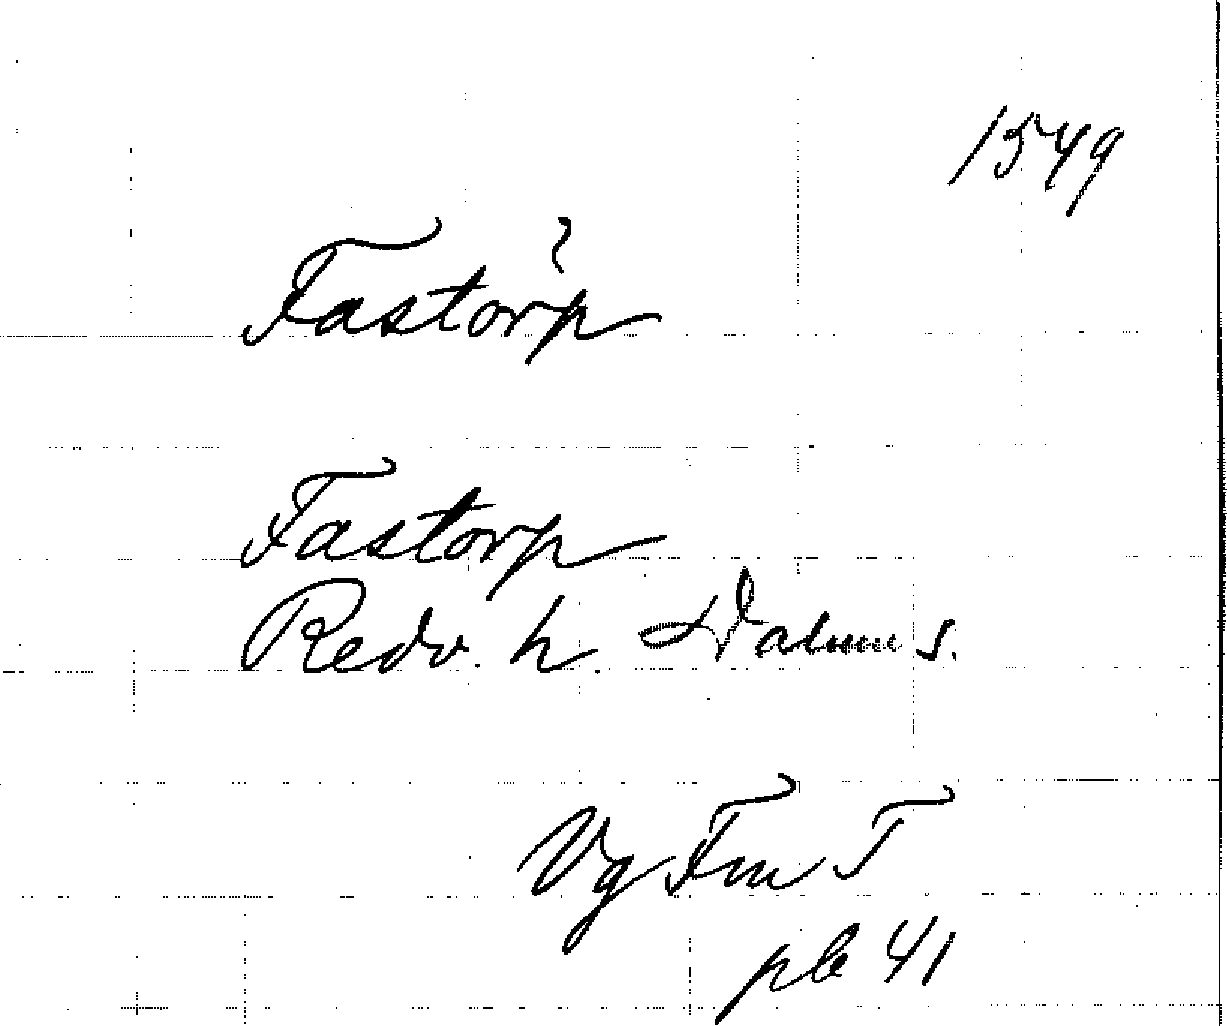 1549
?
Fastorp
Fastorp
Redv. h. Dalum s.
Vg Fm T
pb 41